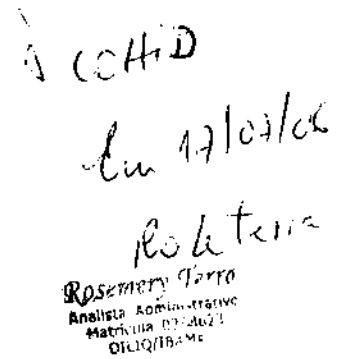 À COHID
Em 17/07/06
Rosemery Terra
Analista Administrativo
Matrícula
DILIQ/IBAMA